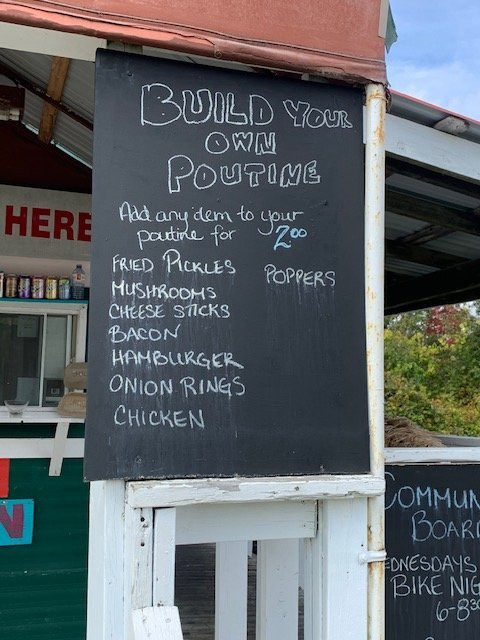 BUILD YOUR
OWN
POUTINE
Add any item to your
poutine for 2.00
FRIED PICKLES
POPPERS
MUSHROOMS
CHEESE STICKS
BACON
HAMBURGER
ONION RINGS
CHICKEN
HERE
N
COMMUN
BOARD
EDNESDAYS
BIKE NIG
6-8:30